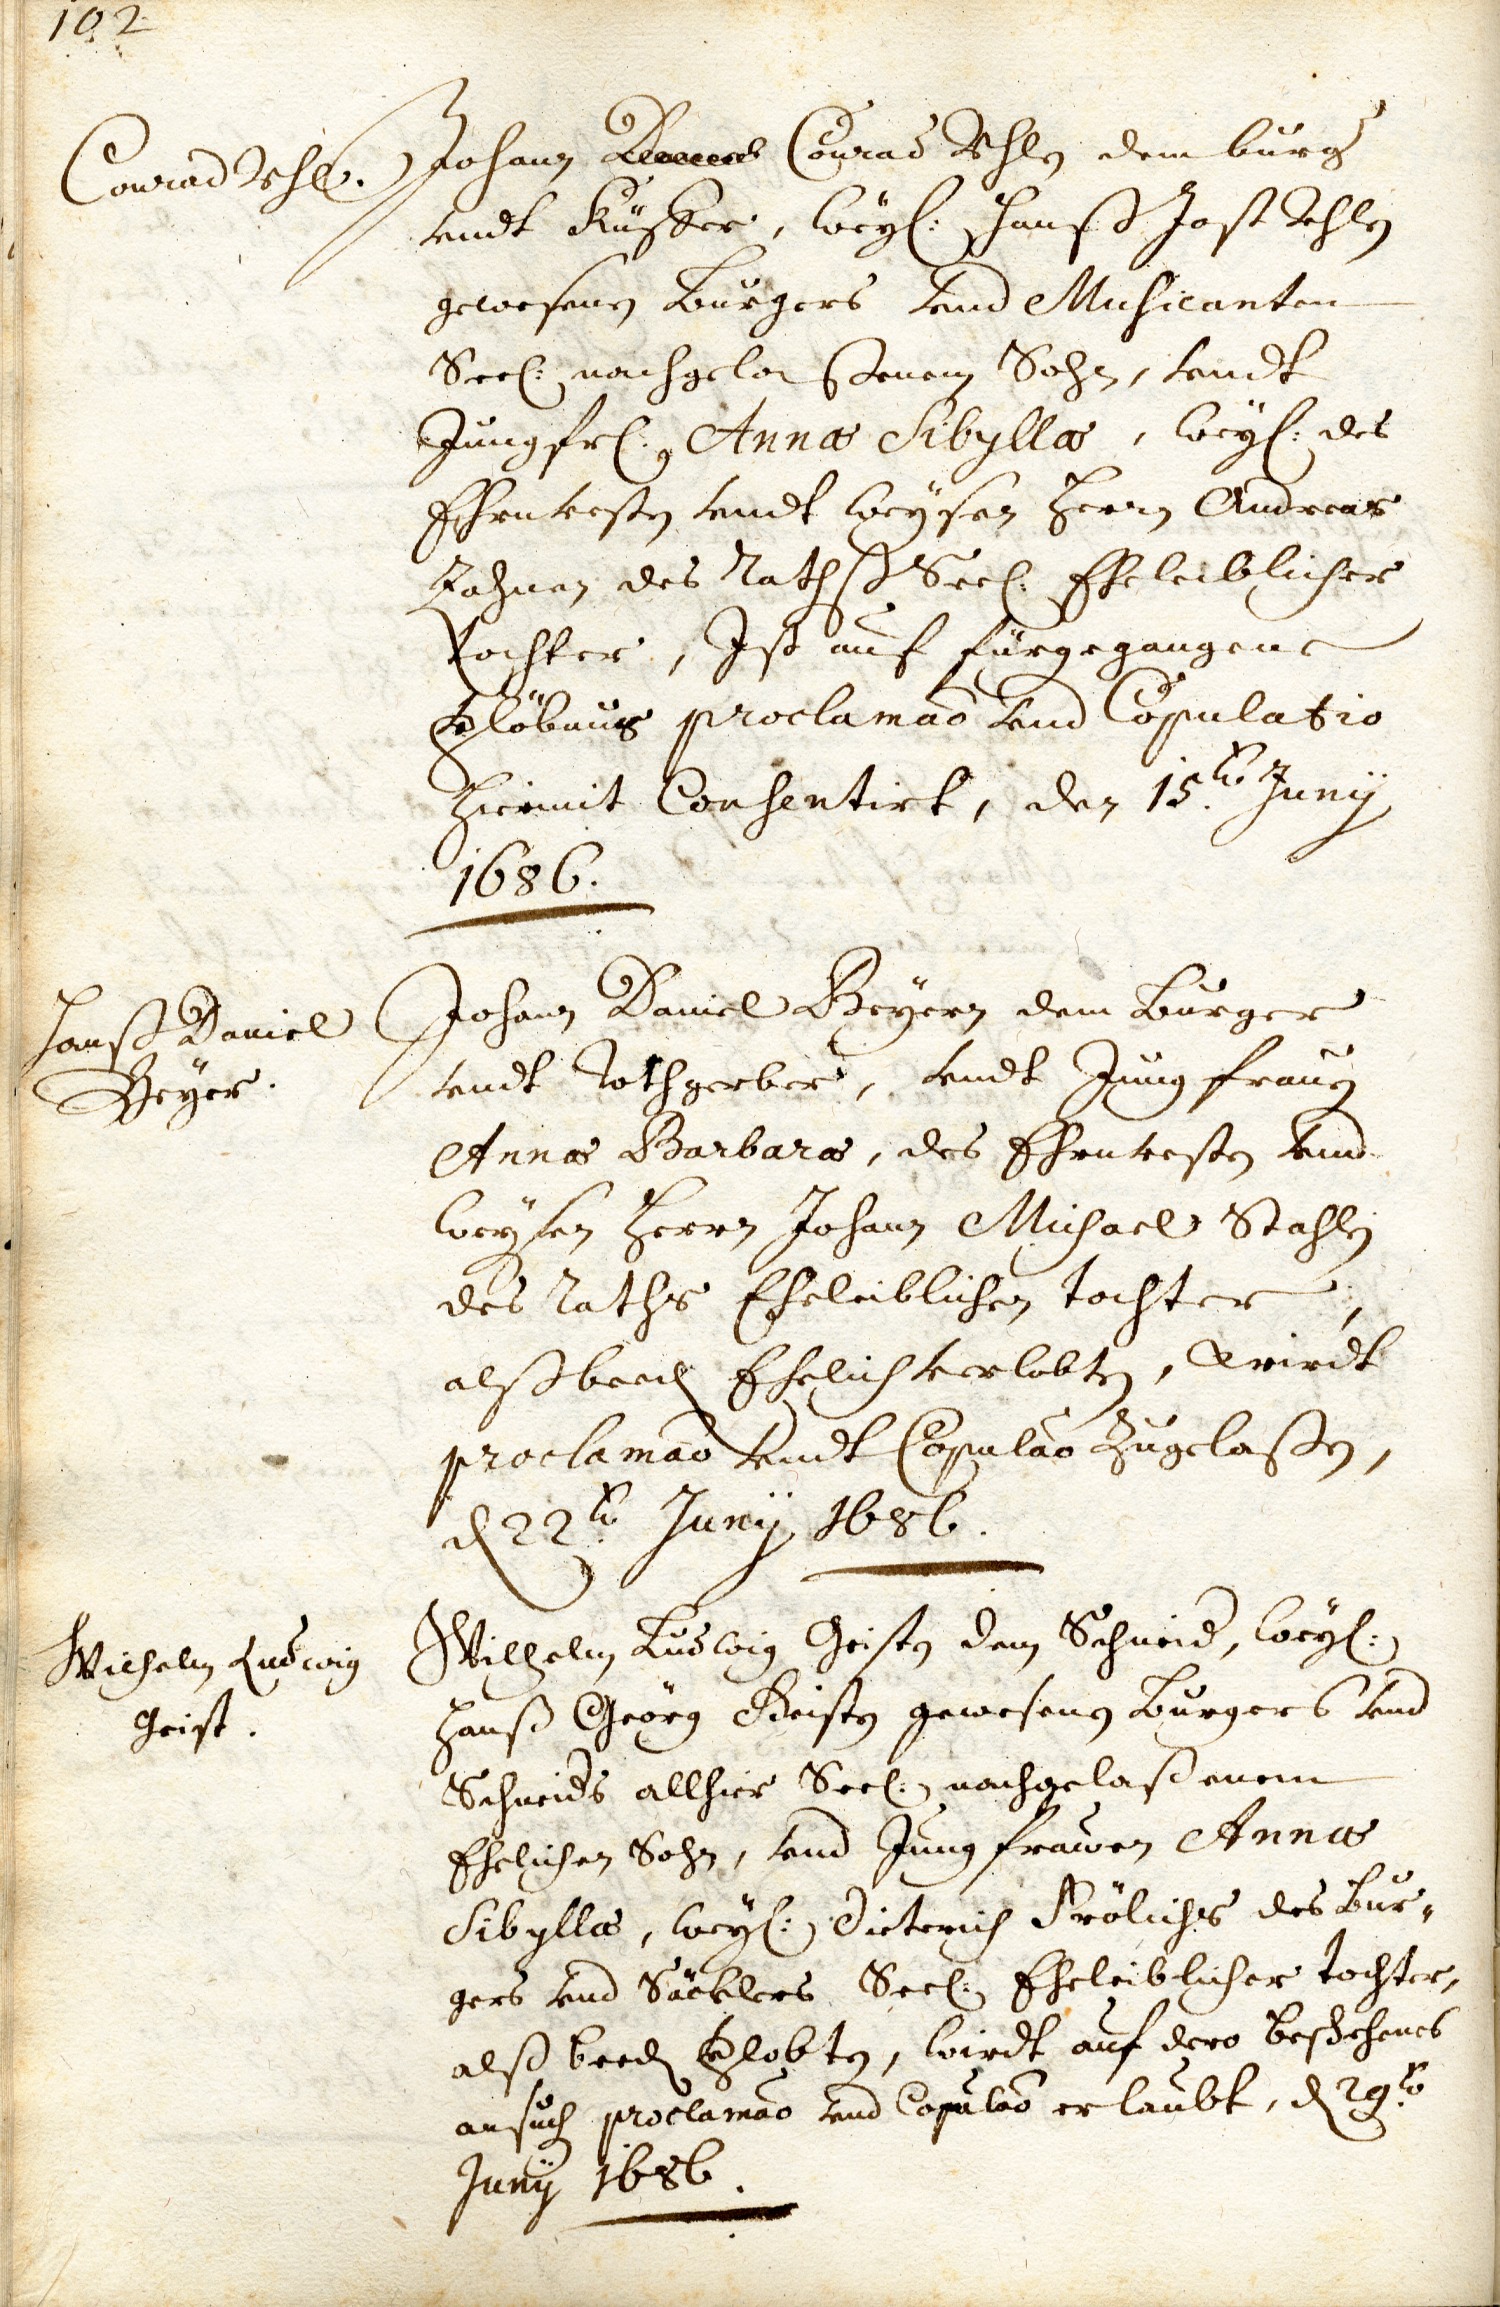 102
Conrad Uhl.
Johann Conrad Uhln dem burg
undt Küffer, weyl: Hanß Jost Uhln
gewesenen Burgers und Musicanten
Seel: nachgelaßenem Sohn, undt
Jungfrl: Annæ Sibyllæ, weyl: des
Ehrnvesten undt weysen Herrn Andreas
Zahnen des Rathß Seel: Eheleiblicher
Tochter, Ist auf fürgegangene
Vlöbnus proclamao und Copulatio
hiermit Consentirt, den 15.ten Junij
1686.
Hanß Daniel
Beyer.
Johann Daniel Beyern dem Burger
undt Rothgerber, undt Jungfrauen
Annæ Barbaræ, des Ehrnvesten und
weysen Herrn Johann Michael Stahln
des Raths Eheleiblichen tochter,
alß beed Ehelich verlobten, Wirdt
proclamao undt Copulao Zugelaßen,
d 22.ten Junij 1686.
Wilhelm Ludwig
Geist.
Wilhelm Ludwig Geisten dem Schneid, weyl:
Hanß Georg Geisten gewesenen Burgers und
Schneids allhier Seel: nachgelaßenem
Ehelichen Sohn, und Jungfrawen Annæ
Sibyllæ, weyl: Dieterich Frölichs des Bur„
gers und Säcklers Seel: Eheleiblicher tochter,
alß beed Vlobten, wirdt auf dero beschehenes
ansuch proclamao und Copulao erlaubt, d 29.ten
Junij 1686.